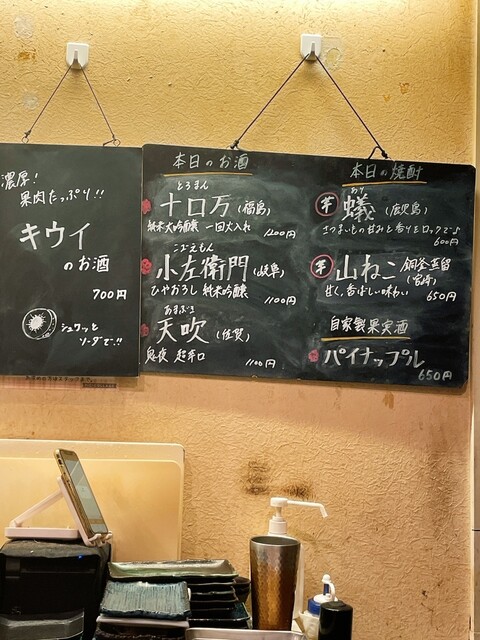 濃厚!
果肉たっぷり!!
キウイ
のお酒
700円
シュワッと
ソーダで!!
本日のお酒
とろまん
十口万(福島)
純米大吟醸 一回火入れ
1200円
こざえもん
小左衛門(岐阜)
ひやおろし 純米吟醸
1100円
あまぶき
天吹(佐賀)
超辛口
1100円
本日の焼酎
あり
芋 蟻(鹿児島)
さつまいもの甘みと香りをロックで♪
600円
芋 山ねこ
(宮崎)
甘く、香ばしい味わい
650円
自家製果実酒
パイナップル
650円